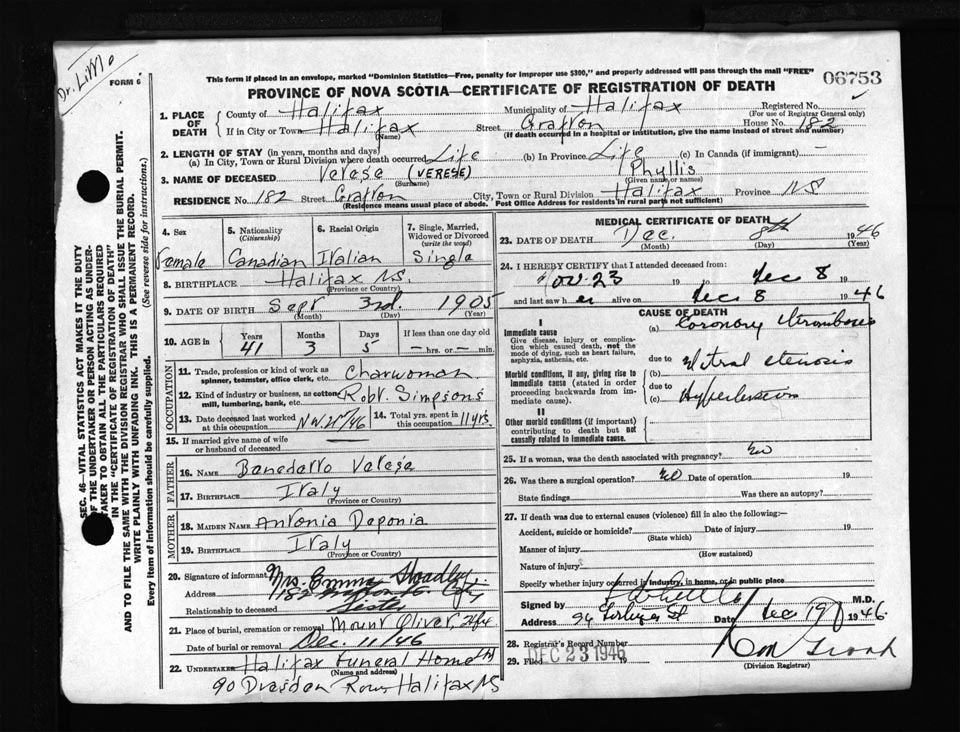 Dr. LiMo
FORM 6
This form if placed in an envelope, marked "Dominion Statistics—Free, penalty for improper use $300," and properly addressed will pass through the mail "FREE"
06753
PROVINCE OF NOVA SCOTIA—CERTIFICATE OF REGISTRATION OF DEATH
SEC. 46—VITAL STATISTICS ACT MAKES IT THE DUTY
OF THE UNDERTAKER OR PERSON ACTING AS UNDER-
TAKER TO OBTAIN ALL THE PARTICULARS REQUIRED
IN THE "CERTIFICATE OF REGISTRATION OF DEATH"
AND TO FILE THE SAME WITH THE DIVISION REGISTRAR WHO SHALL ISSUE THE BURIAL PERMIT.
WRITE PLAINLY WITH UNFADING INK. THIS IS A PERMANENT RECORD.
Every item of information should be carefully supplied. (See reverse side for instructions.)
1. PLACE OF DEATH
County of Halifax Municipality of Halifax Registered No.
(For use of Registrar General only)
If in City or Town Halifax Street Grafton House No. 182
(Name) (If death occurred in a hospital or institution, give the name instead of street and number)
2. LENGTH OF STAY (in years, months and days)
(a) In City, Town or Rural Division where death occurred Life (b) In Province Life (c) In Canada (if immigrant) —
3. NAME OF DECEASED Verese (VERESE) Phyllis
(Surname) (Given name or names)
RESIDENCE No. 182 Street Grafton City, Town or Rural Division Halifax Province NS
(Residence means usual place of abode. Post Office Address for residents in rural parts not sufficient)
4. Sex
Female
5. Nationality (Citizenship)
Canadian
6. Racial Origin
Italian
7. Single, Married, Widowed or Divorced (write the word)
Single
8. BIRTHPLACE Halifax NS.
(Province or Country)
9. DATE OF BIRTH Sept 3rd. 1905
(Month) (Day) (Year)
10. AGE in
Years Months Days If less than one day old
41 3 5 — hrs. or — min.
OCCUPATION
11. Trade, profession or kind of work as spinner, teamster, office clerk, etc. Charwoman
12. Kind of industry or business, as cotton mill, lumbering, bank, etc. Robt. Simpsons
13. Date deceased last worked at this occupation
14. Total yrs. spent in this occupation 11 yrs.
15. If married give name of wife or husband of deceased —
FATHER
16. NAME Banedatto Verese
17. BIRTHPLACE Italy
(Province or Country)
MOTHER
18. MAIDEN NAME Antonia Deponia
19. BIRTHPLACE Italy
(Province or Country)
20. Signature of informant Mrs. Emma
Address 182 Grafton St. City
Relationship to deceased Sister
21. Place of burial, cremation or removal Mount Olivet, Hfx
Date of burial or removal Dec. 11/46
22. UNDERTAKER Halifax Funeral Home Ltd
(Name and address)
90 Dresden Row, Halifax NS
MEDICAL CERTIFICATE OF DEATH
23. DATE OF DEATH Dec. 8th 1946
(Month) (Day) (Year)
24. I HEREBY CERTIFY that I attended deceased from:
Nov. 23 19 to Dec 8 19
and last saw her alive on Dec 8 1946
CAUSE OF DEATH
I
Immediate cause
Give disease, injury or complication which caused death, not the mode of dying, such as heart failure, asphyxia, asthenia, etc.
(a) Coronary thrombosis
due to
Morbid conditions, if any, giving rise to immediate cause (stated in order proceeding backwards from immediate cause).
(b) Mitral stenosis
due to
(c) Hypertension
II
Other morbid conditions (if important) contributing to death but not causally related to immediate cause.
25. If a woman, was the death associated with pregnancy? no
26. Was there a surgical operation? no Date of operation 19
State findings Was there an autopsy?
27. If death was due to external causes (violence) fill in also the following:—
Accident, suicide or homicide? Date of injury 19
(State which)
Manner of injury
(How sustained)
Nature of injury
Specify whether injury occurred in industry, in home, or in public place
Signed by M.D.
Address Date Dec 19 1946
28. Registrar's Record Number
29. Filed DEC 23 1946 19
(Division Registrar)